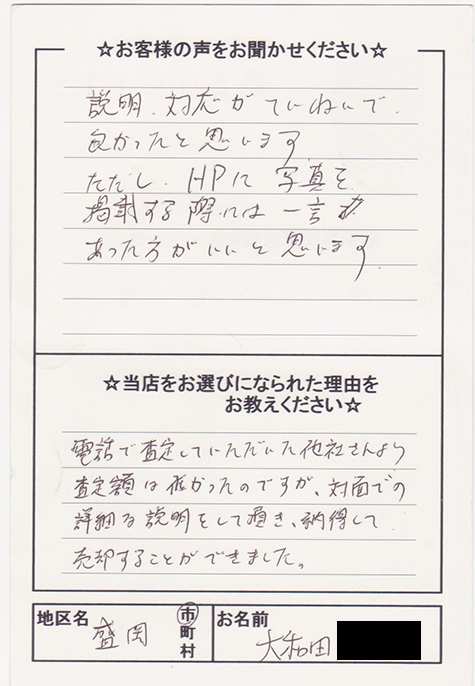 ☆お客様の声をお聞かせください☆
説明、対応がていねいで、
良かったと思います
ただし、HPに写真を
掲載する際には一言
あった方がいいと思います
☆当店をお選びになられた理由を
お教えください☆
電話で査定していただいた他社さんより
査定額は低かったのですが、対面での
詳細な説明をして頂き、納得して
売却することができました。
地区名 盛岡 市町村 お名前 大和田